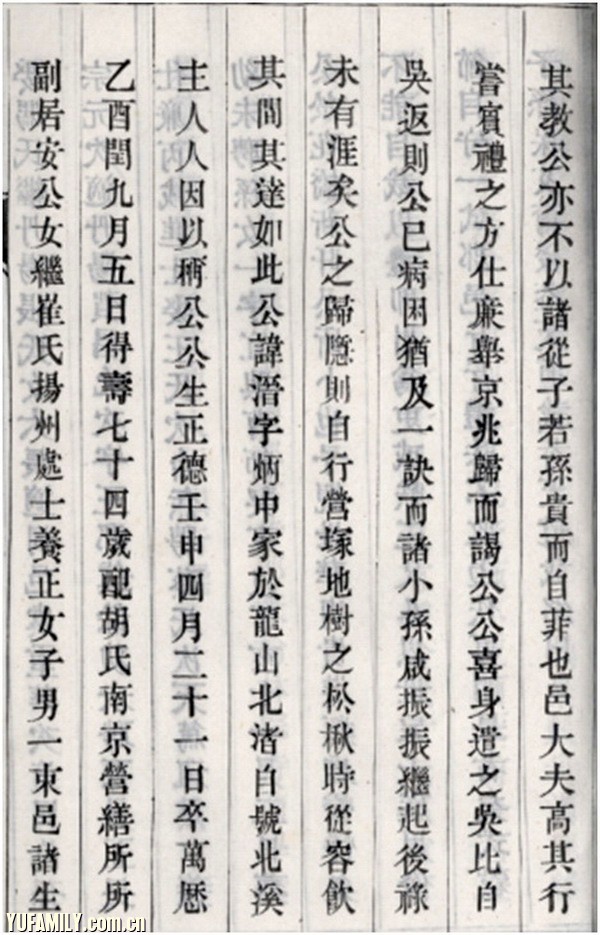 其教公亦不以諸從子若孫貴而自菲也邑大夫高其行
嘗賓禮之方仕廉舉京兆歸而謁公公喜身遣之吳比自
吳返則公已病困猶及一訣而諸小孫咸振振繼起後祿
未有涯矣公之歸隱則自行營塚地樹之松楸時從容飲
其間其達如此公諱潛字炳中家於龍山北渚自號北溪
主人人因以稱公公生正德壬申四月二十一日卒萬歷
乙酉閏九月五日得壽七十四歲配胡氏南京營繕所所
副居安公女繼崔氏揚州處士養正女子男一東邑諸生
YUFAMILY.com.cn